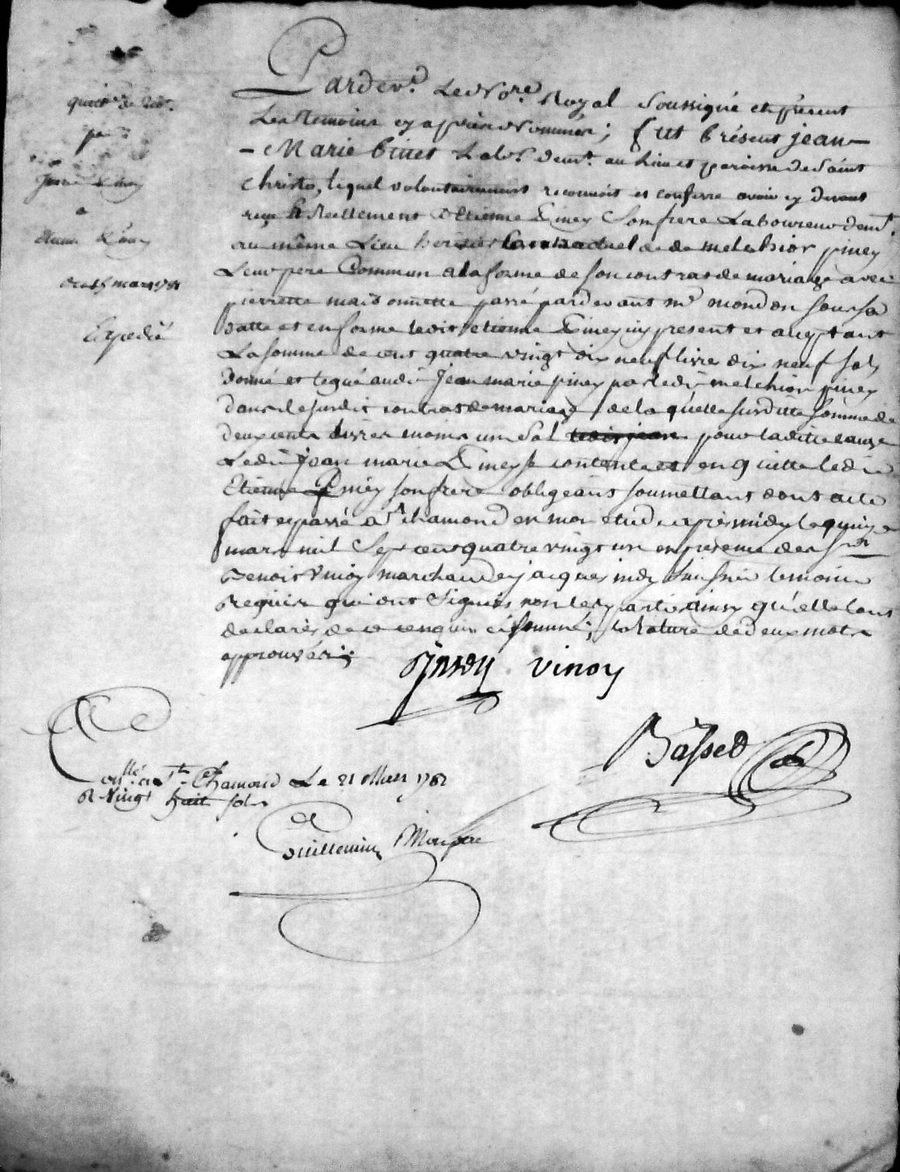 quitt.ce de 200#
par
Jean Piney
a
Etienne Piney
du 15 mars 1781
Expedié
Pardev.t Le No.re Royal Soussigné et présent
Les temoins cy après nommés; fut présent jean
Marie Piney Lab.r dem.t au lieu et paroisse de Saint
Christo, lequel volontairement reconnoit et confesse avoir cy devant
reçu Reellement d'Etienne Piney Son frere Laboureur dem.t
au même Lieu heritier contractuel de de melchior piney
Leur pere Commun a la forme de son contrat de mariage avec
pierrette maisonnette passé pardevant m.e mondon sous sa
datte et en forme ledit etienne Piney icy present et acceptant
La somme de cent quatre vingt dix neuf livre dix neuf sols
donné et legué audit Jean marie piney par ledit melchior piney
dans le susdit contrat de mariage, de laquelle susditte somme de
deux cents livres moins un Sol pour laditte cause
Ledit Jean marie Piney se contente et en quitte ledit
Etienne Piney son frere obligeant soumettant dont acte
fait et passé a S.t chamond en mon etude après midy le quinze
mars mil sept cent quatre vingt un en presence de s.r
Benoit Vinoy marchand et jacques huissier temoins
Requis qui ont Signés non les parties ainsy qu'elle l'ont
declarés de ce enquis et sommés; la rature de deux mots
approuvée;
vinoy
Basset
Coll.é a S.t Chamond Le 21 Mars 1781
R. vingt huit sols
Guillemin